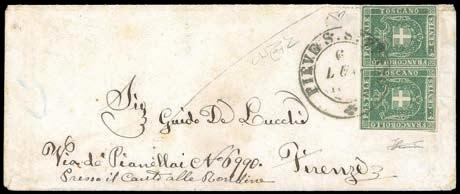 FRANCOBOLLO
POSTALE
TOSCANO
5 CENTES
FRANCOBOLLO
POSTALE
TOSCANO
5 CENTES
PIEVE S. S.
6
LUG
Sig
Guido De Lucchi
Via de' Pianellai No 6990.
Firenze
Presso il Canto alle Rondine